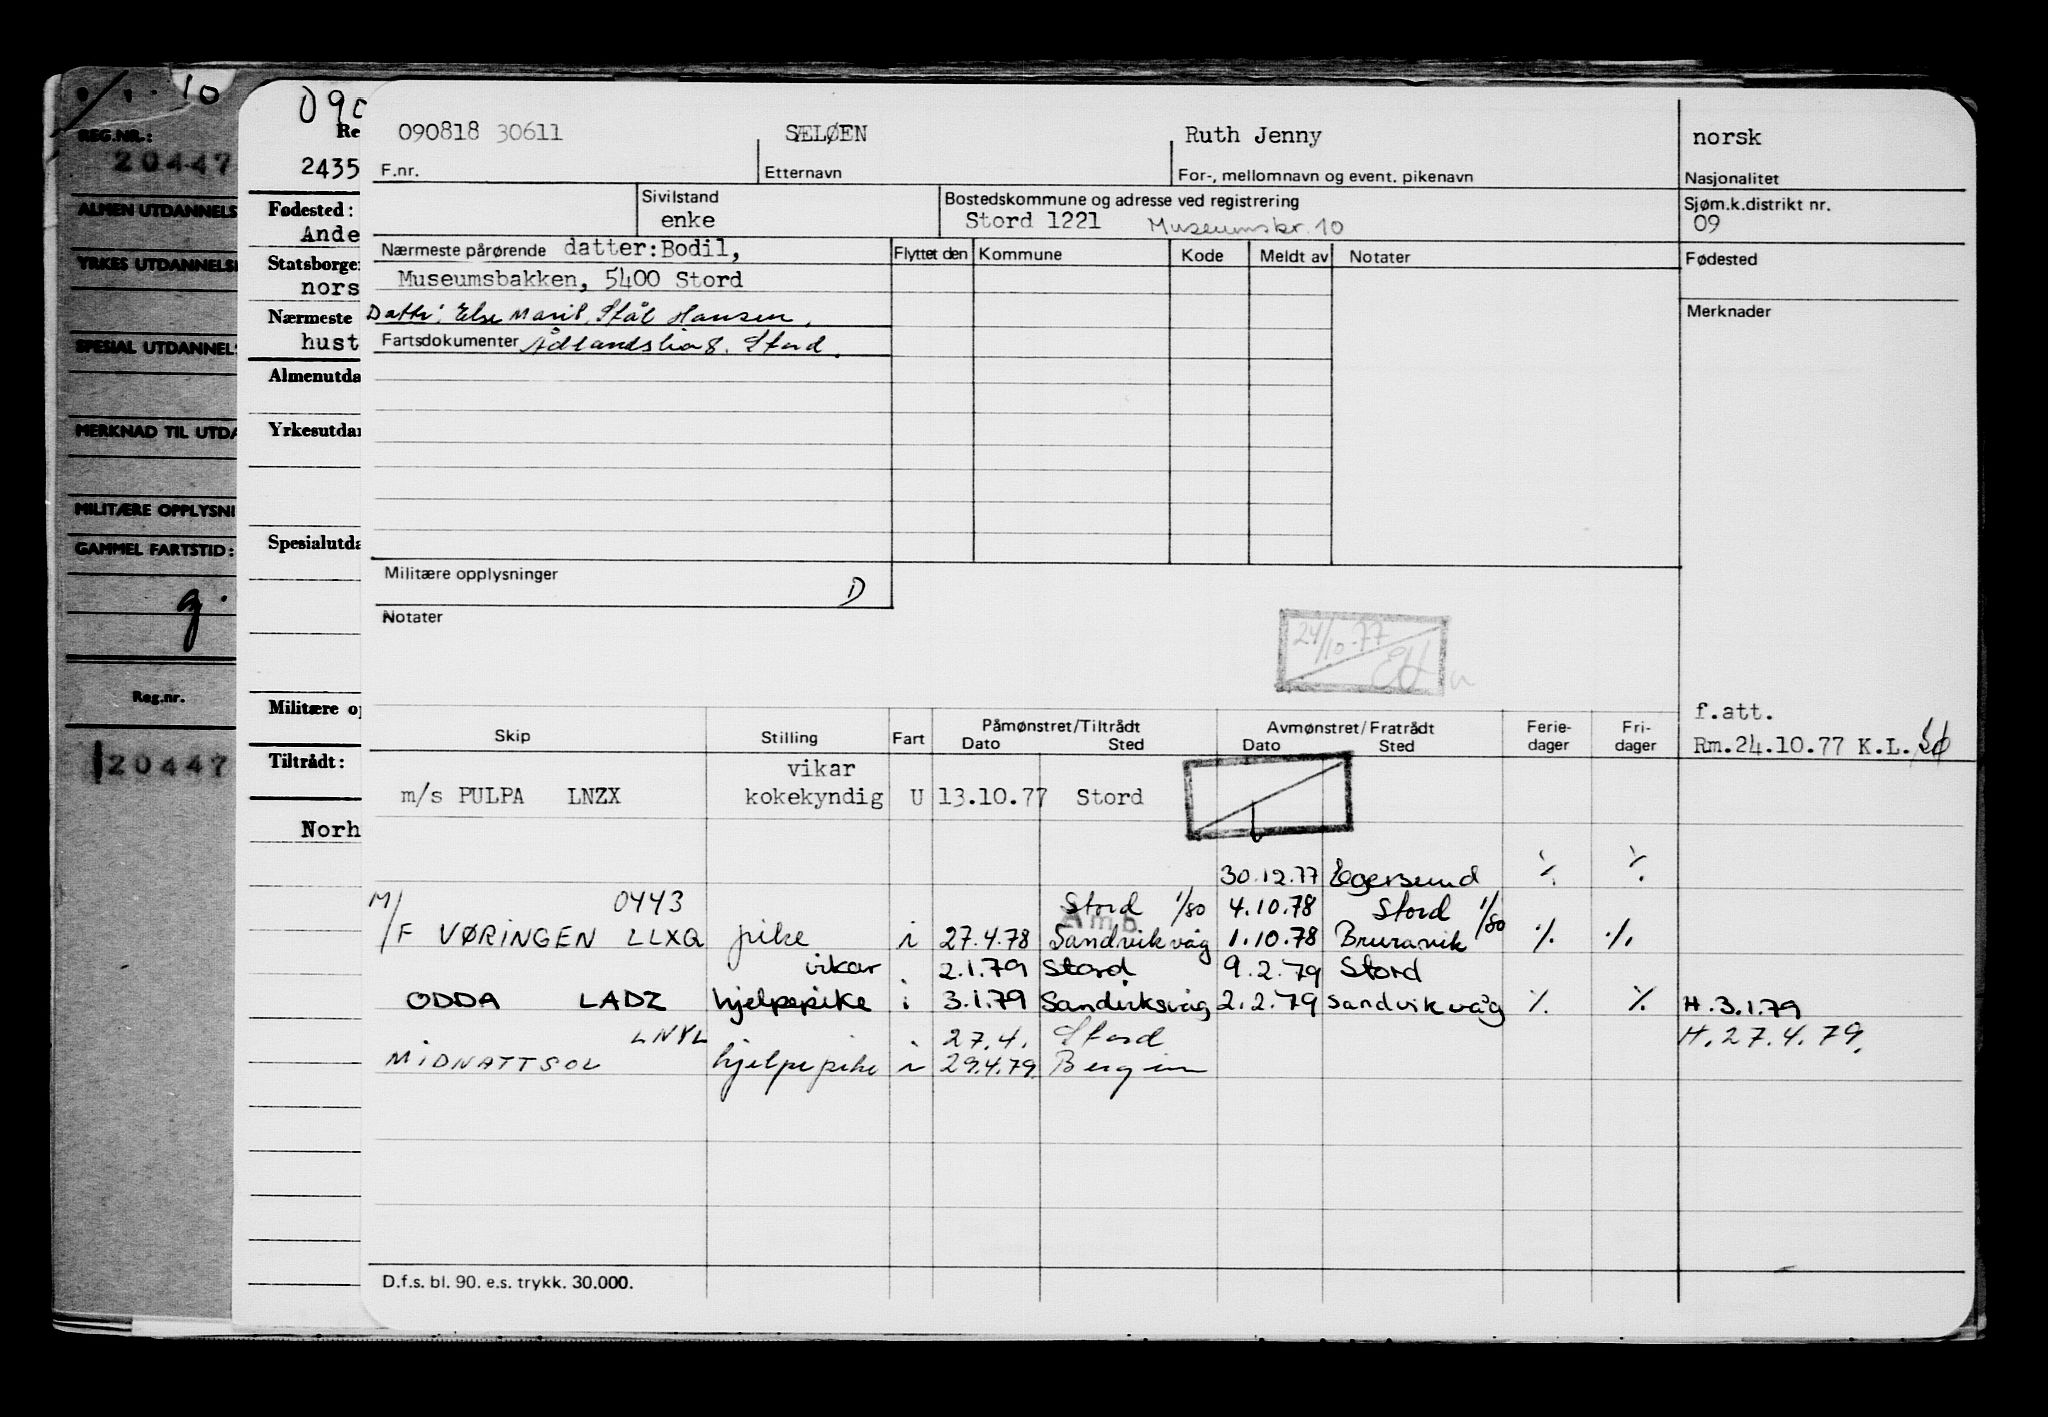 9/1.10
REG.NR.:
20447
ALMEN UTDANNELS
YRKES UTDANNELS
SPESIAL UTDANNELS
MERKNAD TIL UTDA
MILITÆRE OPPLYSNI
GAMMEL FARTSTID:
g.
Reg.nr.
120447
090
Re
2435
Fødested:
Ande
Statsborge
nors
Nærmeste
hust
Almenutda
Yrkesutda
Spesialutda
Militære op
Tiltrådt:
Norh
090818 30611 SÆLØEN Ruth Jenny norsk
F.nr. Etternavn For-, mellomnavn og event. pikenavn Nasjonalitet
Sivilstand Bostedskommune og adresse ved registrering Sjøm.k.distrikt nr.
enke Stord 1221 Museumsbr. 10 09
Nærmeste pårørende datter:Bodil, Flyttet den Kommune Kode Meldt av Notater Fødested
Museumsbakken, 5400 Stord
Dattr: Else Marit Stål Hansen, Merknader
Fartsdokumenter Ådlandslia 8. Stord.
Militære opplysninger D
Notater
24/10-77 EH
f.att.
Skip Stilling Fart Påmønstret/Tiltrådt Avmønstret/Fratrådt Ferie- Fri-
Dato Sted Dato Sted dager dager Rm.24.10.77 K.L.
vikar
m/s PULPA LNZX kokekyndig U 13.10.77 Stord
30.12.77 Egersund ./. ./.
0443 Stord 1/80 4.10.78 Stord 1/80
Amb
M/F VØRINGEN LLXQ pike i 27.4.78 Sandvikvåg 1.10.78 Bruravik ./. ./.
vikar 2.1.79 Stord 9.2.79 Stord
ODDA LADZ hjelpepike i 3.1.79 Sandviksvåg 2.2.79 Sandvikvåg ./. ./. H.3.1.79
LNYL 27.4. Stord H.27.4.79.
MIDNATTSOL hjelpepike i 29.4.79 Bergen
D.f.s. bl. 90. e.s. trykk. 30.000.